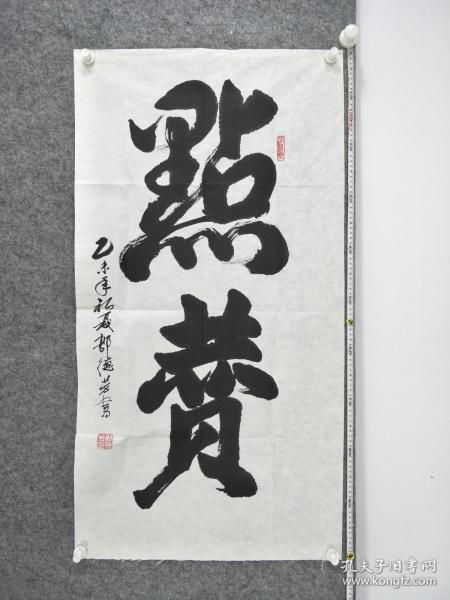 點贊
乙未年初夏德書
孔夫子旧书网
www.kongfz.com